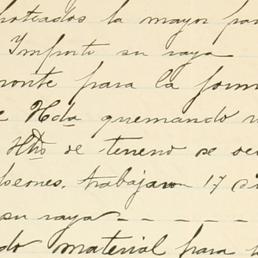 la mayor par
Importe su raya
monte para la form
Hda quemando
Hts de terreno se
peones, trabajaron 17 di
su raya - - - - -
do material para